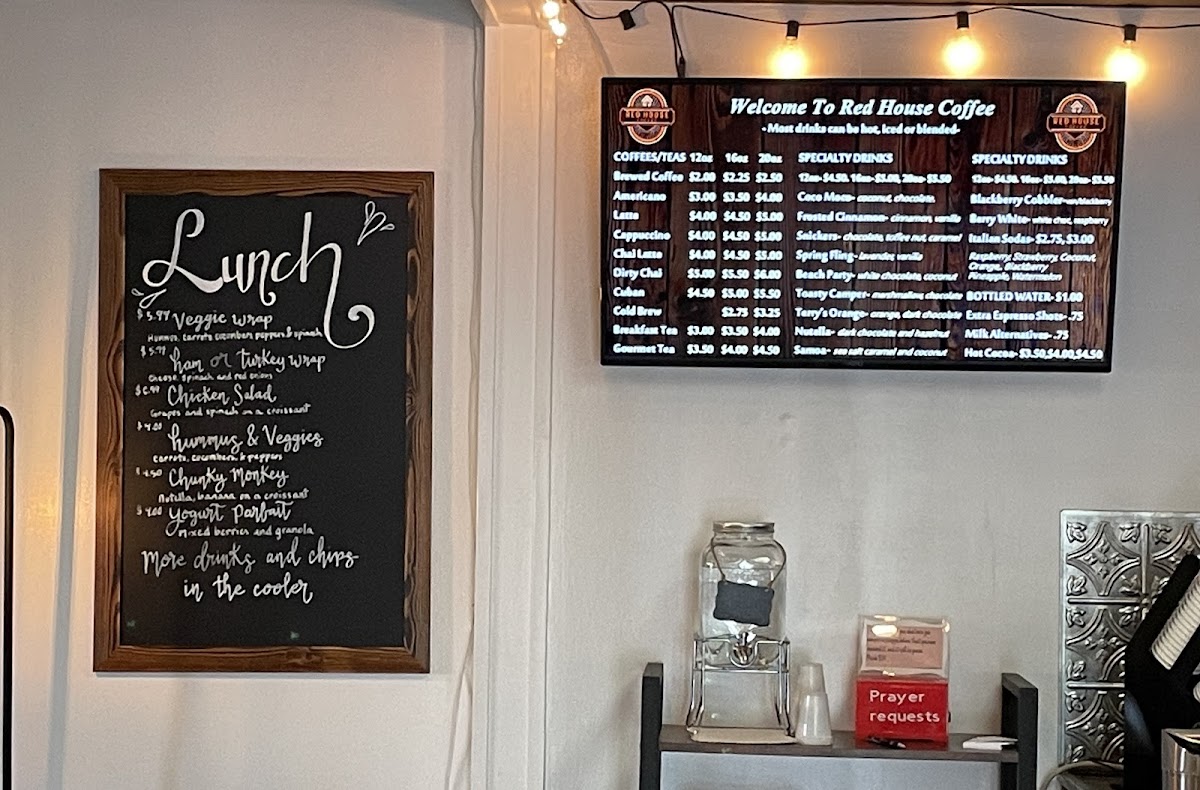 Lunch
$5.99 Veggie wrap
Hummus, carrots, cucumbers, peppers & spinach
$5.99 ham or turkey wrap
Cheese, spinach and red onions
Chicken Salad
Grapes and spinach on a croissant
$4.00 hummus & Veggies
carrots, cucumbers, & peppers
Chunky Monkey
Nutella, banana on a croissant
$4.00 Yogurt Parfait
Mixed berries and granola
More drinks and chips
in the cooler
RED HOUSE
Welcome To Red House Coffee
RED HOUSE
- Most drinks can be hot, iced or blended-
COFFEES/TEAS 12oz 16oz 20oz
Brewed Coffee $2.00 $2.25 $2.50
Americano $3.00 $3.50 $4.00
Latte $4.00 $4.50 $5.00
Cappuccino $4.00 $4.50 $5.00
Chai Latte $4.00 $4.50 $5.00
Dirty Chai $5.00 $5.50 $6.00
Cuban $4.50 $5.00 $5.50
Cold Brew $2.75 $3.25
Breakfast Tea $3.00 $3.50 $4.00
Gourmet Tea $3.50 $4.00 $4.50
SPECIALTY DRINKS
12oz- $4.50, 16oz- $5.00, 20oz- $5.50
Coco Moco- coconut, chocolate
Frosted Cinnamon- cinnamon, vanilla
Snickers- chocolate, toffee nut, caramel
Spring Fling- lavender, vanilla
Beach Party- white chocolate, coconut
Toasty Camper- marshmallow, chocolate
Terry's Orange- orange, dark chocolate
Nutella- dark chocolate and hazelnut
Samoa- sea salt caramel and coconut
SPECIALTY DRINKS
12oz- $4.50, 16oz- $5.00, 20oz- $5.50
Blackberry Cobbler- w/ blackberry
Berry White- white choc, raspberry
Italian Sodas- $2.75, $3.00
Raspberry, Strawberry, Coconut,
Orange, Blackberry
Pineapple, Watermelon
BOTTLED WATER- $1.00
Extra Espresso Shots- .75
Milk Alternatives- .75
Hot Cocoa- $3.50,$4.00,$4.50
Prayer
requests